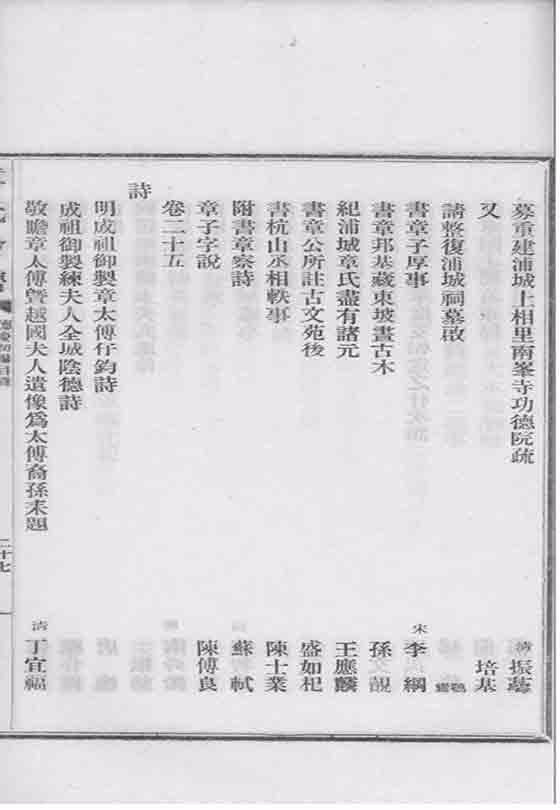 募重建浦城上相里南峯寺功德院疏 振藹
又 培基
請整復浦城祠墓啟
書章子厚事 宋 李綱
書章邦基藏東坡畫古木 孫文靚
紀浦城章氏盡有諸元 王應麟
書章公所註古文苑後 盛如杞
書杭山丞相軼事 陳士業
附書章察詩 蘇軾
章子字說 陳傅良
卷二十五
詩
明成祖御製章太傅仔鈞詩
成祖御製練夫人全城陰德詩
敬瞻章太傅暨越國夫人遺像為太傅裔孫耒題 清 丁宜福
二十七